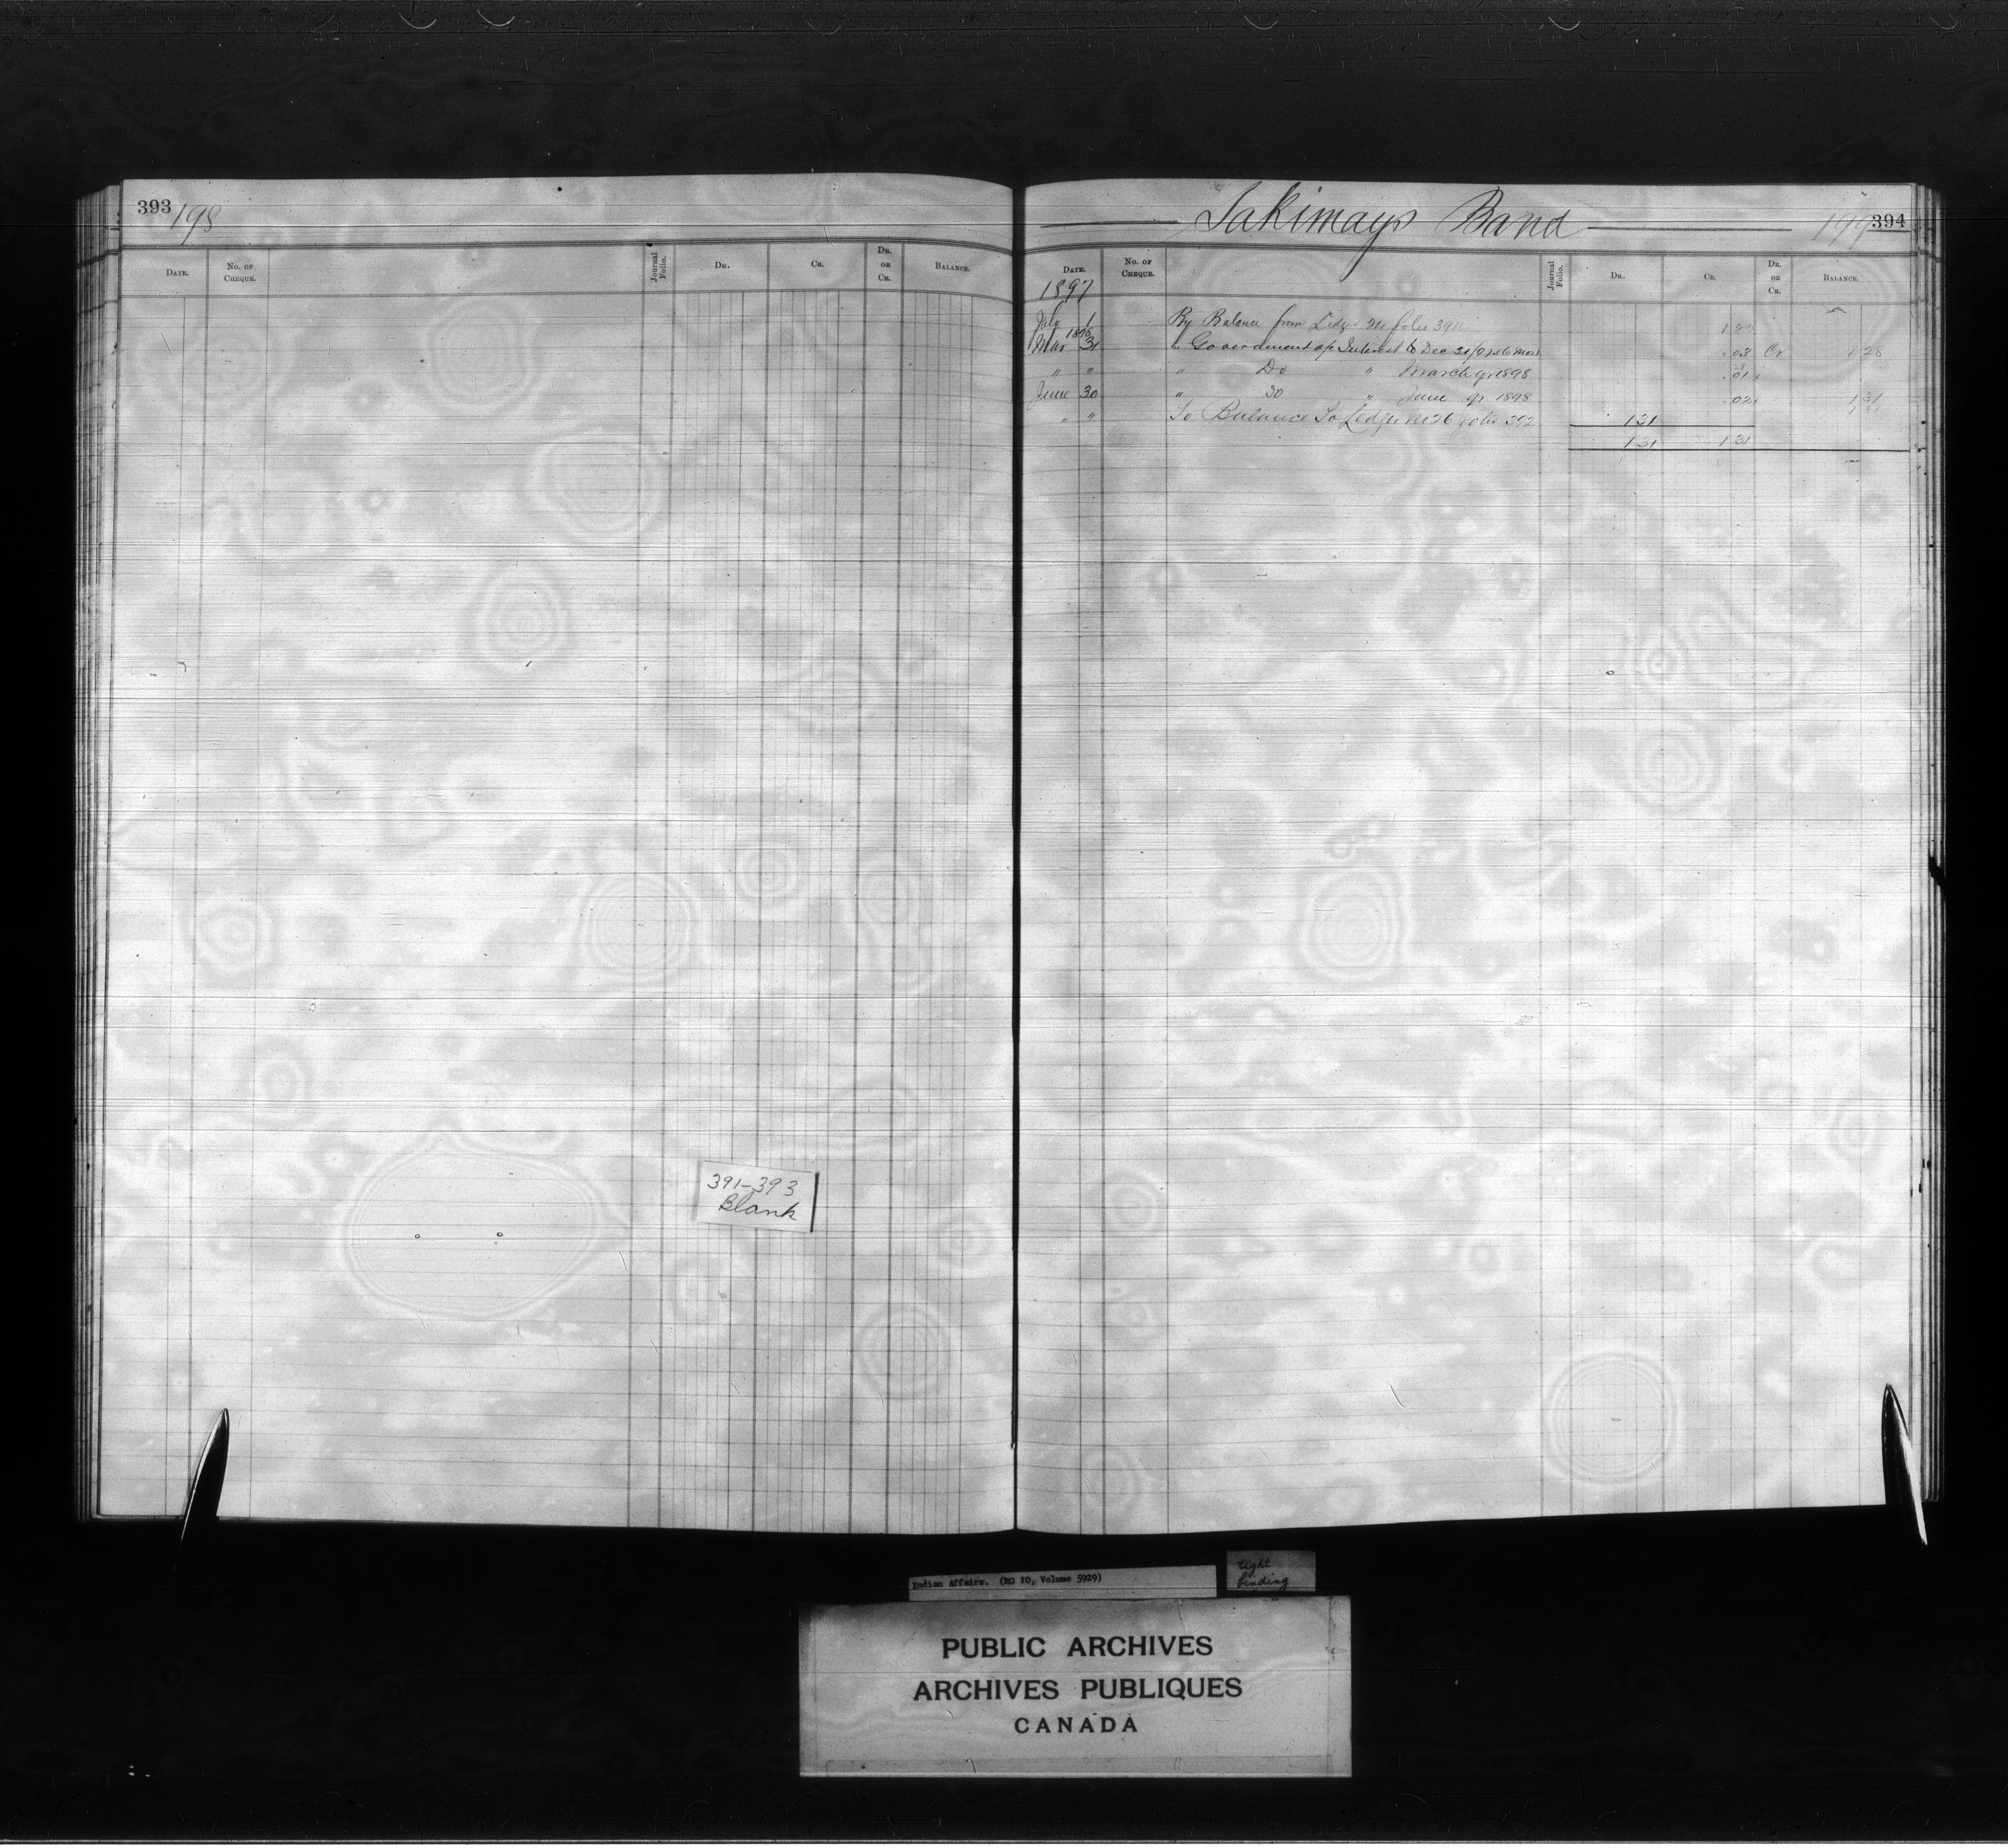 393 198
Date. No. of Cheque. Journal Folio. Dr. Cr. Dr. or Cr. Balance.
391-393
Blank
Sakimays Band 199 394
Date. No. of Cheque. Journal Folio. Dr. Cr. Dr. or Cr. Balance.
1897
July 1 By Balance from Ledger folio
1898
Mar 31 " Government a/c Interest to Dec 31/97 6 mos .03 Cr 1 28
" " " Do " March qr 1898 .01
June 30 " Do " June qr 1898 .02 1 31
" " To Balance To Ledger No 26 folio 392 1 31
1 31 1 31
Indian Affairs. (RG 10, Volume 5929)
tight
binding
PUBLIC ARCHIVES
ARCHIVES PUBLIQUES
CANADA